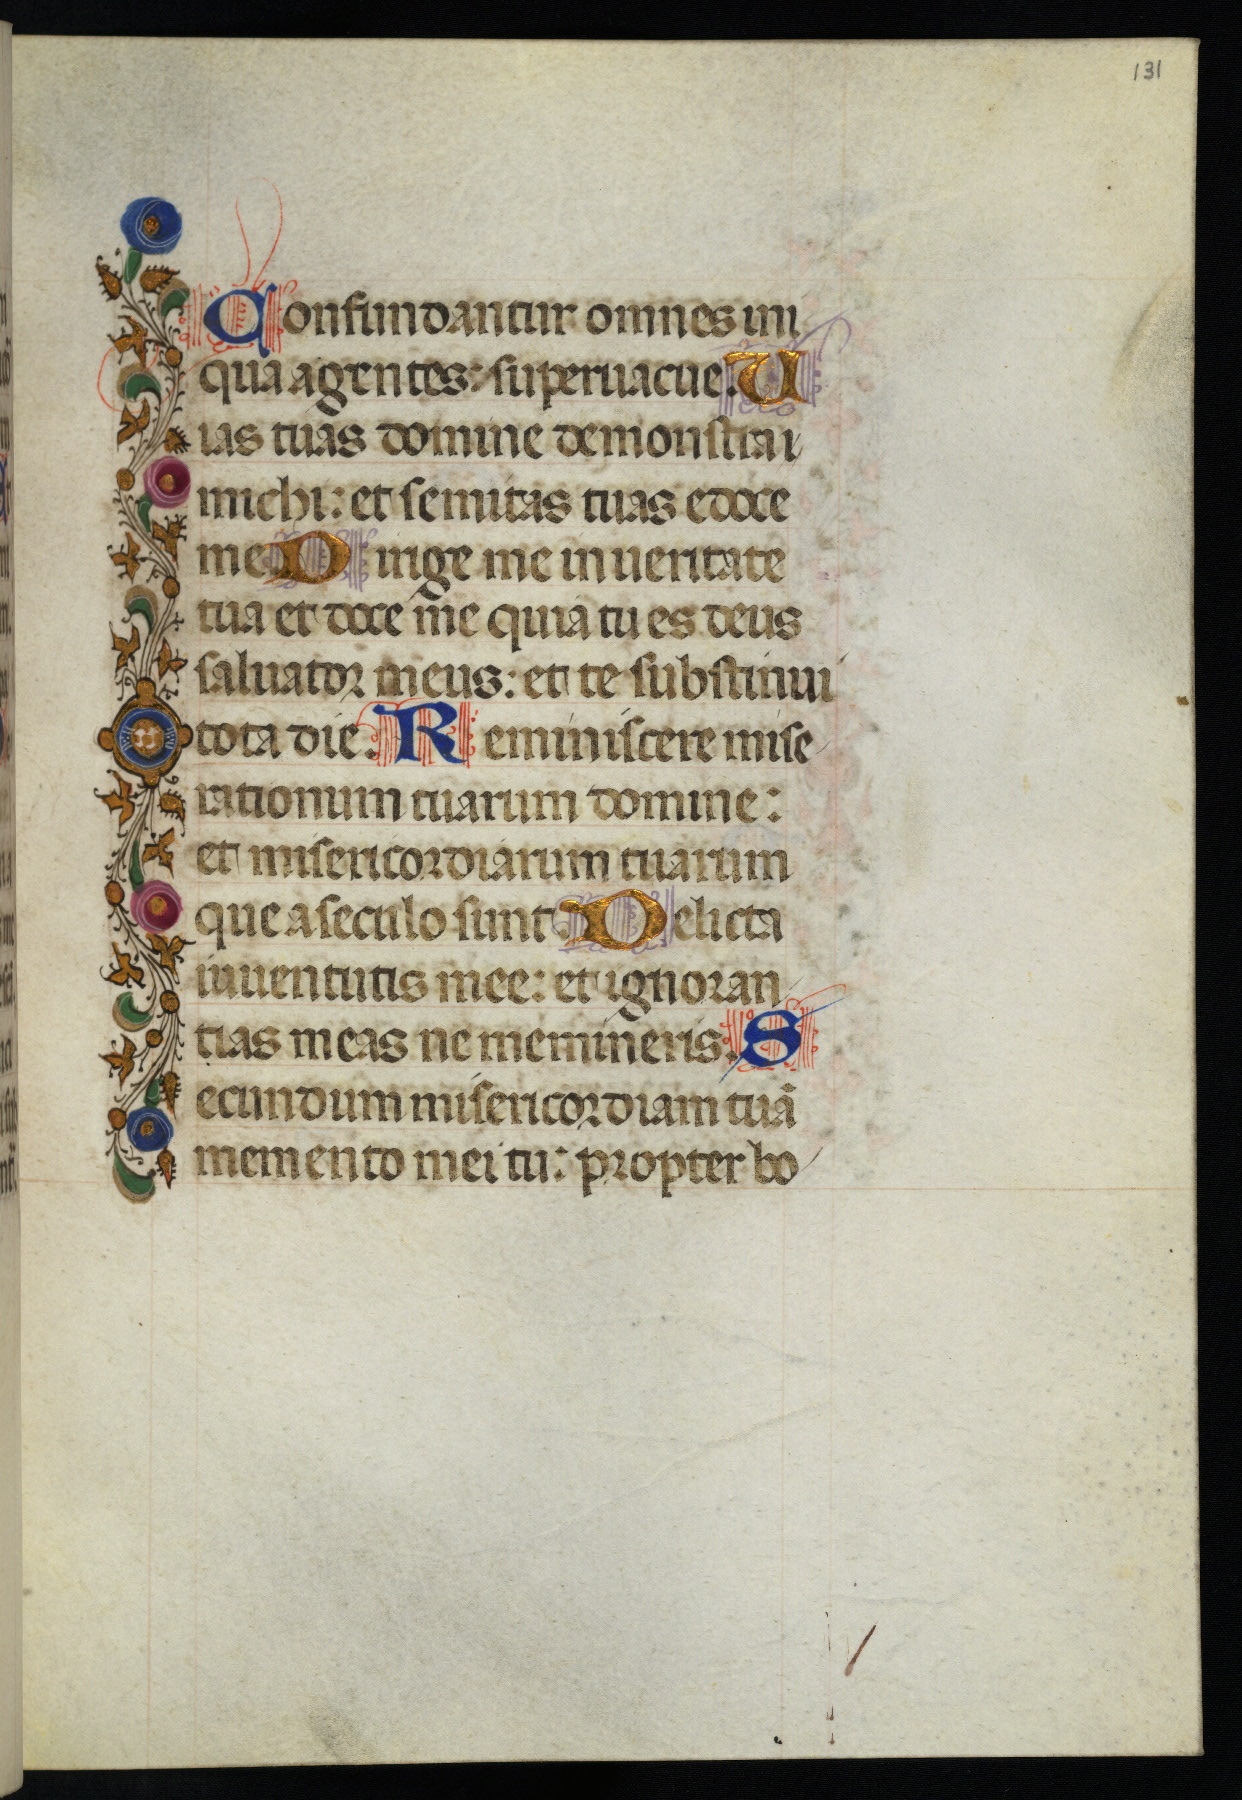 131
Confundantur omnes ini
qua agentes: supervacue. U
ias tuas domine demonstra
michi: et semitas tuas edoce
me D irige me in veritate
tua et doce me quia tu es deus
salvator meus: et te substinui
tota die. R eminiscere mise
rationum tuarum domine:
et misericordiarum tuarum
que a seculo sunt. Delicta
iuventutis mee: et ignoran
tias meas ne memineris. S
ecundum misericordiam tuā
memento mei tu: propter bo